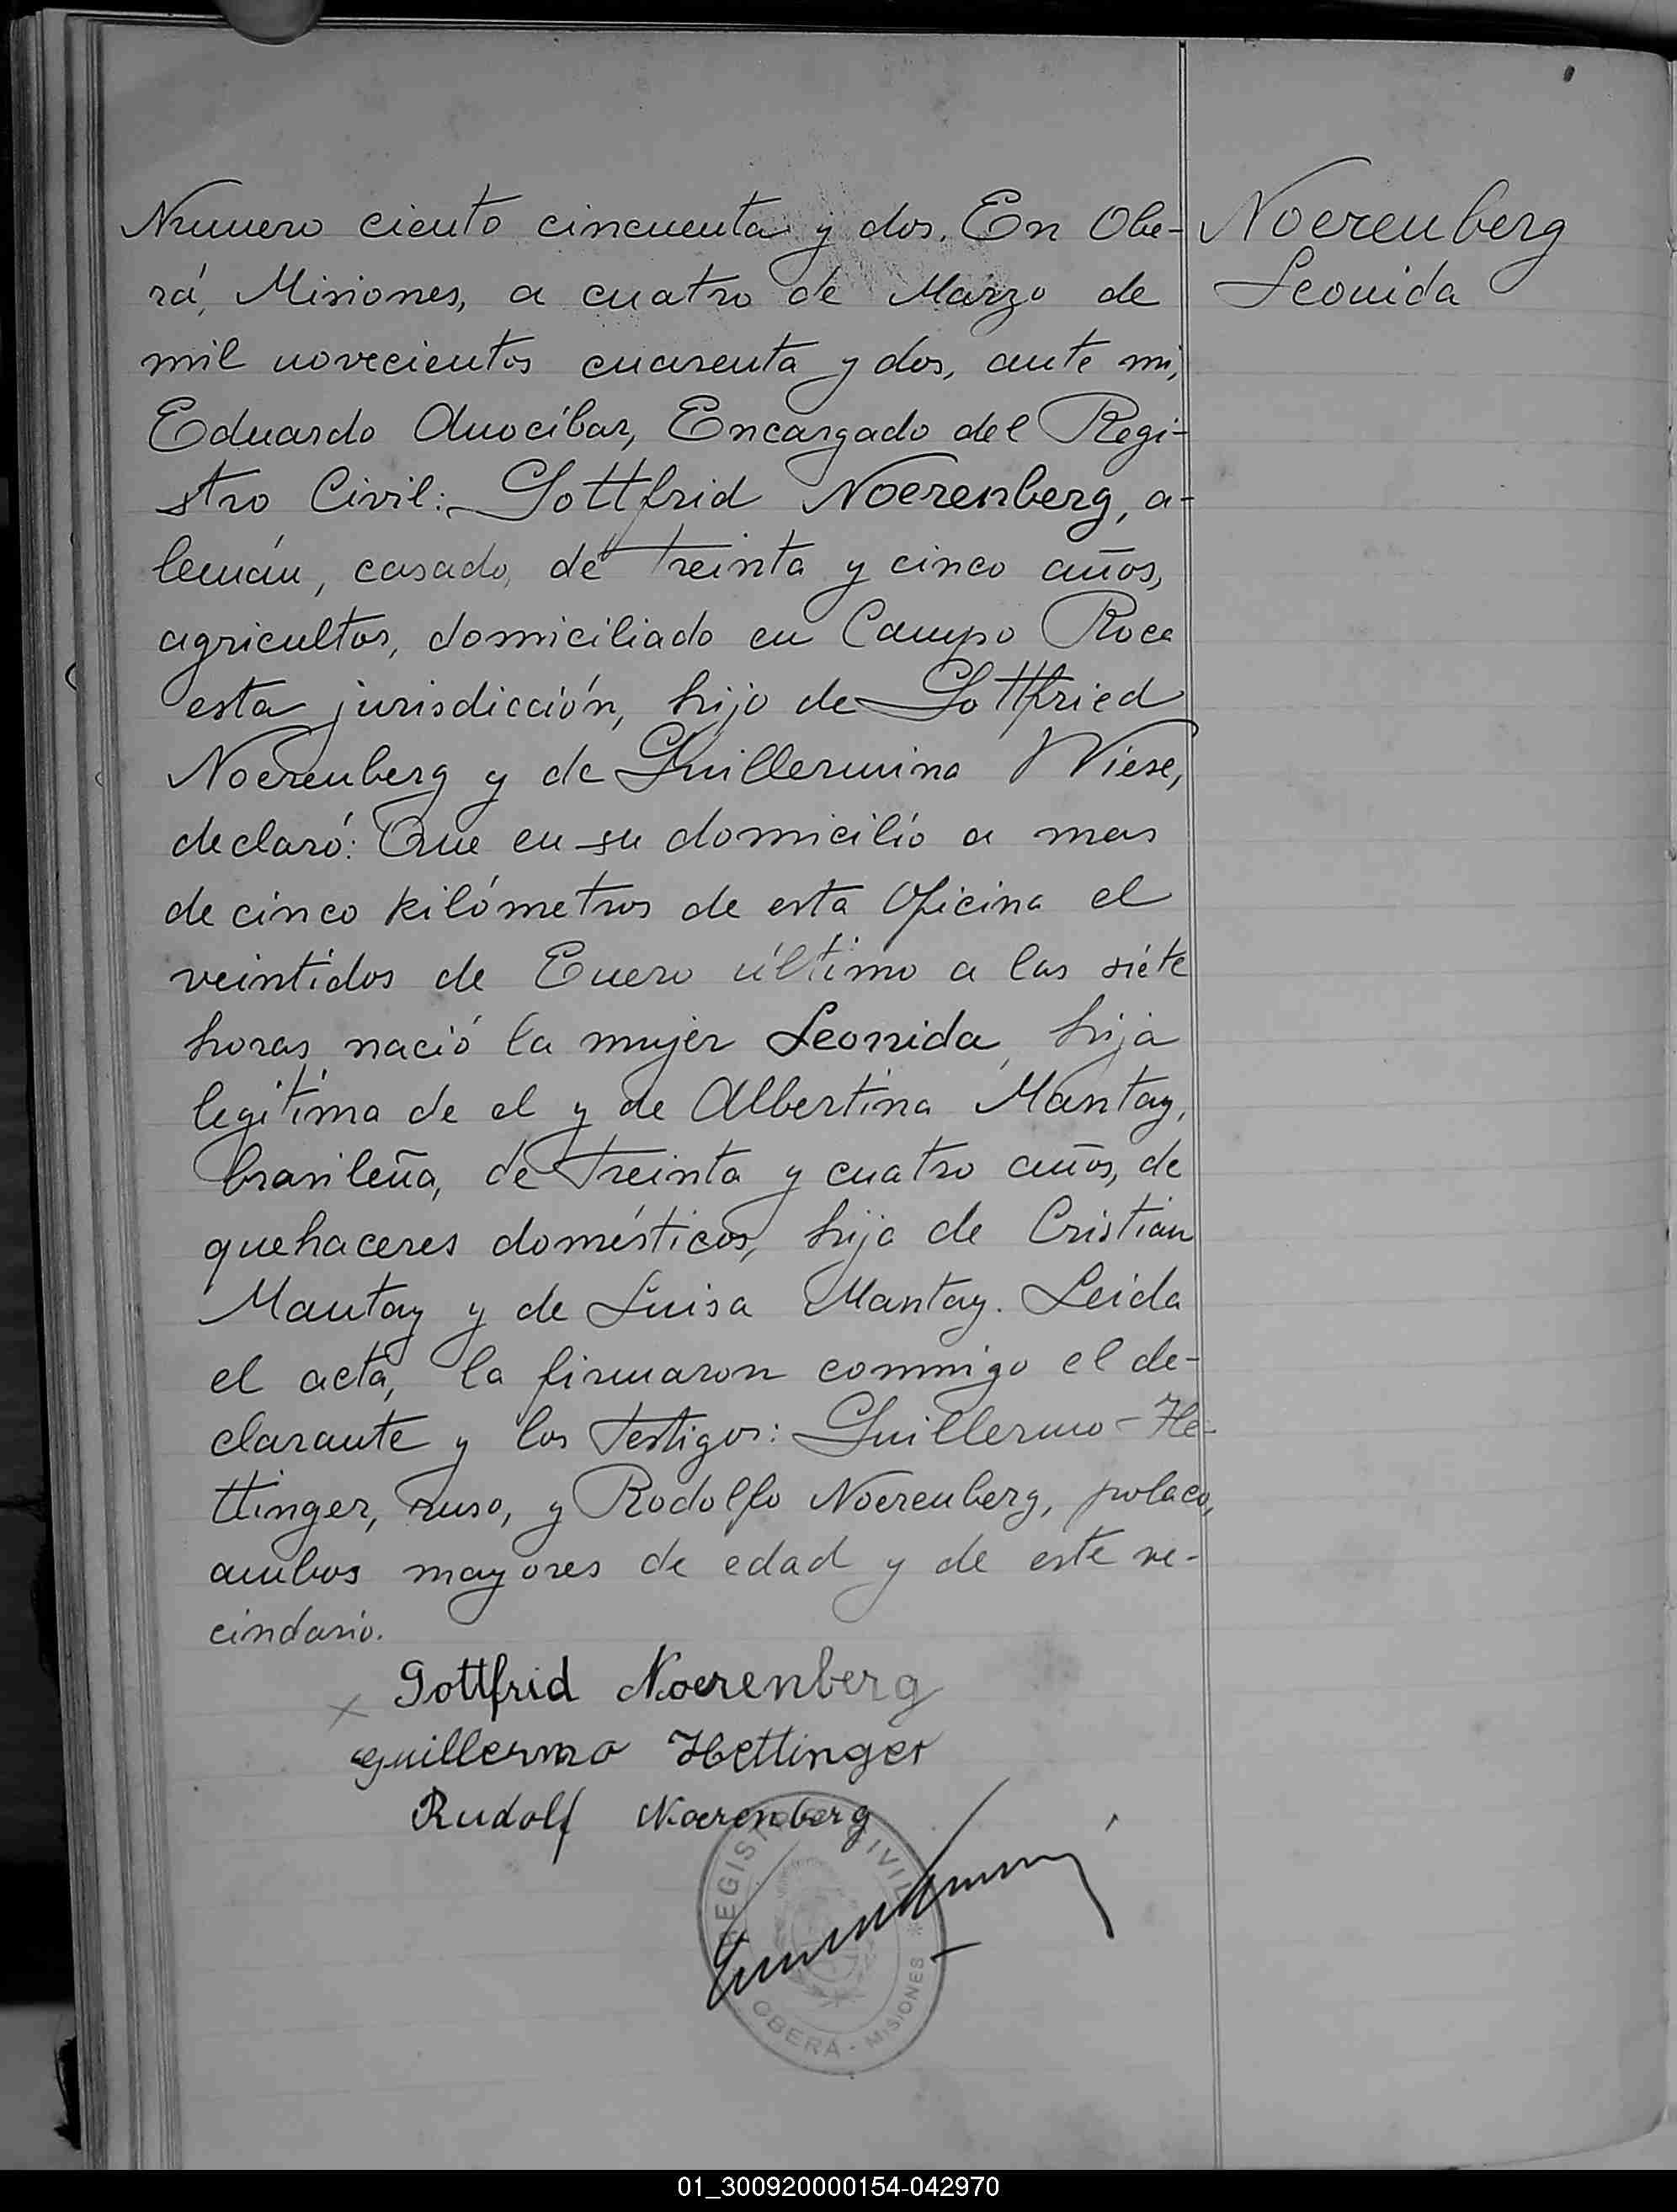 Numero ciento cincuenta y dos. En Obe-
rá, Misiones, a cuatro de Marzo de
mil novecientos cuarenta y dos, ante mi,
Eduardo Anocíbar, Encargado del Regi-
stro Civil: Gottfrid Noerenberg, a-
lemán, casado, de treinta y cinco años,
agricultor, domiciliado en Campo Roca
esta jurisdicción, hijo de Gottfried
Noerenberg y de Guillermina Wiese,
declaró: Que en su domicilio a mas
de cinco kilómetros de esta Oficina el
veintidos de Enero último a las siete
horas nació la mujer Leonida, hija
legítima de el y de Albertina Mantay,
brasileña, de treinta y cuatro años, de
quehaceres domésticos, hija de Cristian
Mantay y de Luisa Mantay. Leida
el acta, la firmaron conmigo el de-
clarante y los testigos: Guillermo He-
ttinger, ruso, y Rodolfo Noerenberg, polaco,
ambos mayores de edad y de este ve-
cindario.
Noerenberg
Leonida
x Gottfrid Noerenberg
Guillermo Hettinger
Rudolf Noerenberg
REGISTRO CIVIL
OBERÁ - MISIONES
01_300920000154-042970